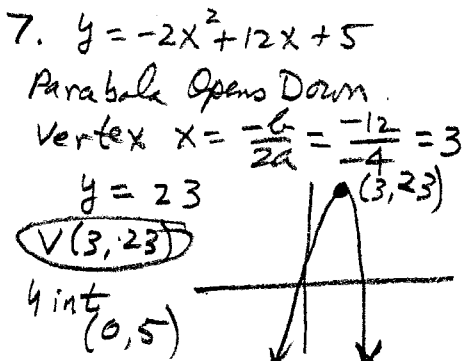 7. y = -2x² + 12x + 5
Parabola Opens Down.
Vertex x = -b/2a = -12/-4 = 3
y = 23
(3, 23)
V(3, 23)
y int
(0, 5)